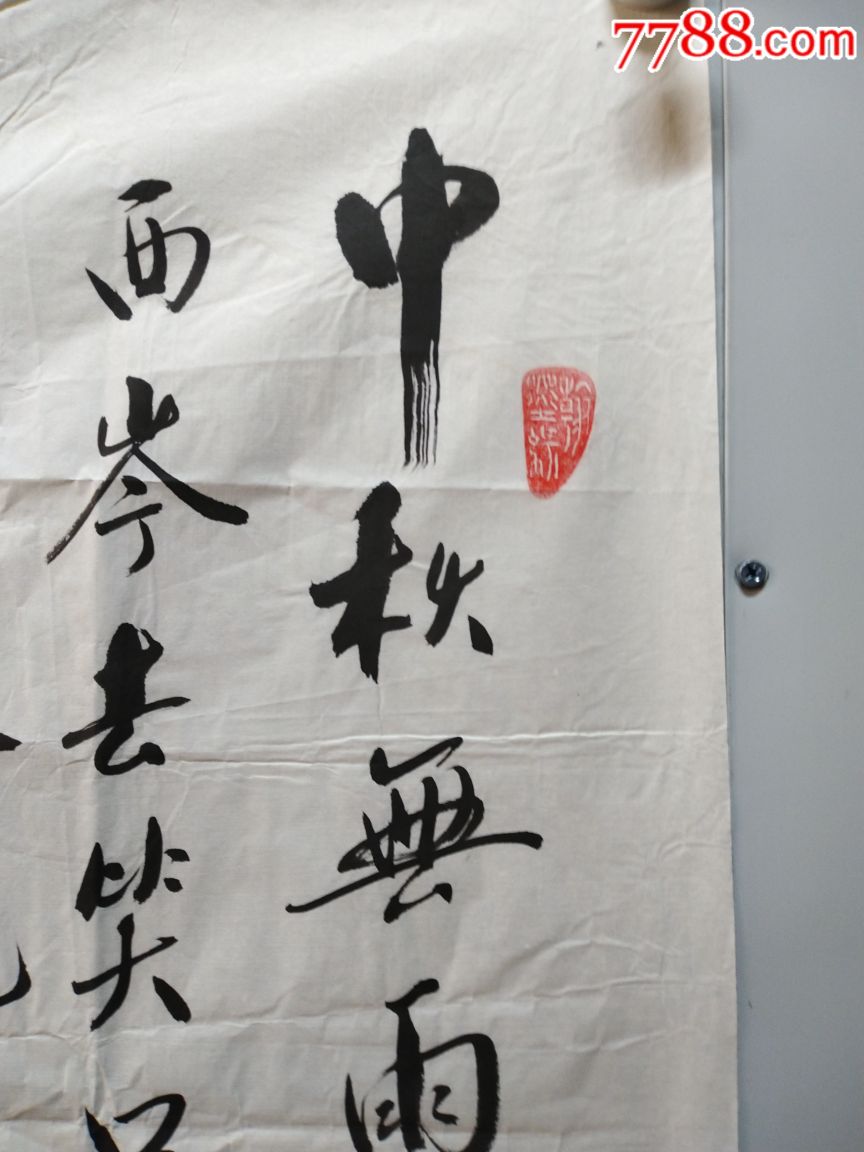 7788.com
中秋無雨
西岑去笑口